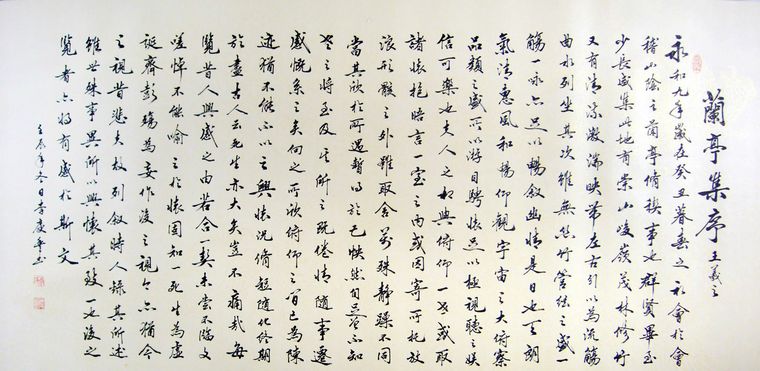 蘭亭集序 王羲之
永和九年歲在癸丑暮春之初會於會
稽山陰之蘭亭脩稧事也群賢畢至
少長咸集此地有崇山峻嶺茂林修竹
又有清流激湍映帶左右引以為流觴
曲水列坐其次雖無絲竹管弦之盛一
觴一詠亦足以暢敘幽情是日也天朗
氣清惠風和暢仰觀宇宙之大俯察
品類之盛所以游目騁懷足以極視聽之娛
信可樂也夫人之相與俯仰一世或取
諸懷抱晤言一室之內或因寄所託放
浪形骸之外雖取舍萬殊靜躁不同
當其欣於所遇暫得於己怏然自足曾不知
老之將至及其所之既倦情隨事遷
感慨系之矣向之所欣俯仰之間已為陳
迹猶不能不以之興懷況脩短隨化終期
於盡古人云死生亦大矣豈不痛哉每
覽昔人興感之由若合一契未嘗不臨文
嗟悼不能喻之於懷固知一死生為虛
誕齊彭殤為妄作後之視今亦猶今
之視昔悲夫故列敘時人錄其所述
雖世殊事異所以興懷其致一也後之
覽者亦將有感於斯文
壬辰年冬日李慶平書